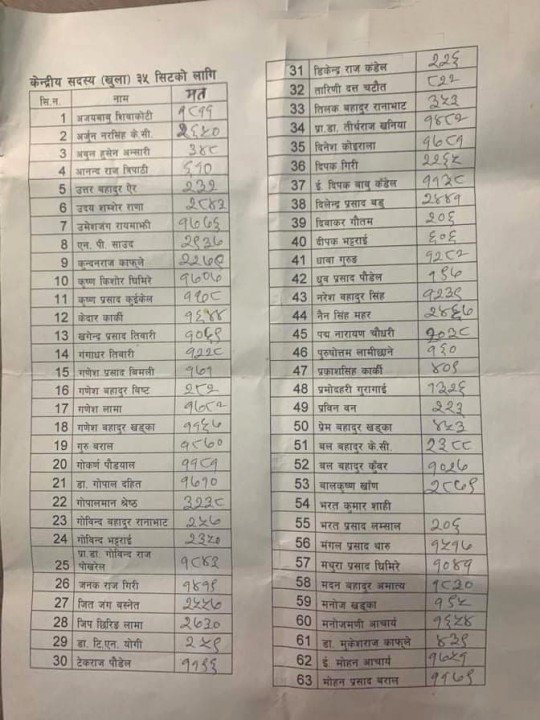 केन्द्रीय सदस्य (खुला) ३५ सिटको लागि
सि.न. नाम मत
1 अजयबाबु शिवाकोटी १८११
2 अर्जुन नरसिंह के.सी. २६५०
3 अबुल हुसेन अन्सारी ३४८
4 आनन्द राज त्रिपाठी ६१०
5 उत्तर बहादुर ऐर २३२
6 उदय शम्शेर राणा २८४३
7 उमेशजंग रायमाझी १७७६
8 एन. पी. साउद २९३७
9 कुन्दनराज काफ्ले २२७९
10 कृष्ण किशोर घिमिरे १७०७
11 कृष्ण प्रसाद कुईकेल ११७८
12 केदार कार्की १६४४
13 खगेन्द्र प्रसाद तिवारी १०६९
14 गंगाधर तिवारी १२२८
15 गणेश प्रसाद विमली १७१
16 गणेश बहादुर विष्ट २८२
17 गणेश लामा १७८२
18 गणेश बहादुर खड्का ११५७
19 गुरु बराल १८७०
20 गोकर्ण पौडयाल ११८१
21 डा. गोपाल दहित १७१०
22 गोपालमान श्रेष्ठ ३२३८
23 गोविन्द बहादुर रानाभाट २५७
24 गोविन्द भट्टराई २३५०
प्रा.डा. गोविन्द राज
25 पोखरेल १८४२
26 जनक राज गिरी १४१९
27 जित जंग बस्नेत २५५७
28 जिप छिरिङ लामा २७३०
29 डा. टि.एन. योगी २५९
30 टेकराज पौडेल ११९६
31 डिकेन्द्र राज कंडेल २२६
32 तारिणी दत्त चटौत ८२२
33 तिलक बहादुर रानाभाट ३५२
34 प्रा.डा. तीर्थराज खनिया १४८२
35 दिनेश कोइराला १७८१
36 दिपक गिरी २२६५
37 ई. दिपक बाबु कंडेल ११३८
38 दिलेन्द्र प्रसाद बडु २४४१
39 दिवाकर गौतम २०६
40 दीपक भट्टराई ६०६
41 धावा गुरुङ १२८२
42 धुव प्रसाद पौडेल १९७
43 नरेश बहादुर सिंह १२३९
44 नैन सिंह महर २४६७
45 पद्म नारायण चौधरी २०३८
46 पुरुषोत्तम लामीछाने १६०
47 प्रकाशसिंह कार्की ४०९
48 प्रमोदहरी गुरागाई १३२६
49 प्रविन बन २२३
50 प्रेम बहादुर खड्का ४५३
51 बल बहादुर के.सी. २३८८
52 बल बहादुर कुँवर १०२७
53 बालकृष्ण खाँण २८७९
54 भरत कुमार शाही
55 भरत प्रसाद लम्साल २०६
56 मंगल प्रसाद थारु १५१७
57 मथुरा प्रसाद घिमिरे १०४१
58 मदन बहादुर अमात्य १८३०
59 मनोज खड्का १९५
60 मनोजमणी आचार्य १६५४
61 डा. मुकेशराज काफ्ले ४३९
62 ई. मोहन आचार्य १७५१
63 मोहन प्रसाद बराल ११७९